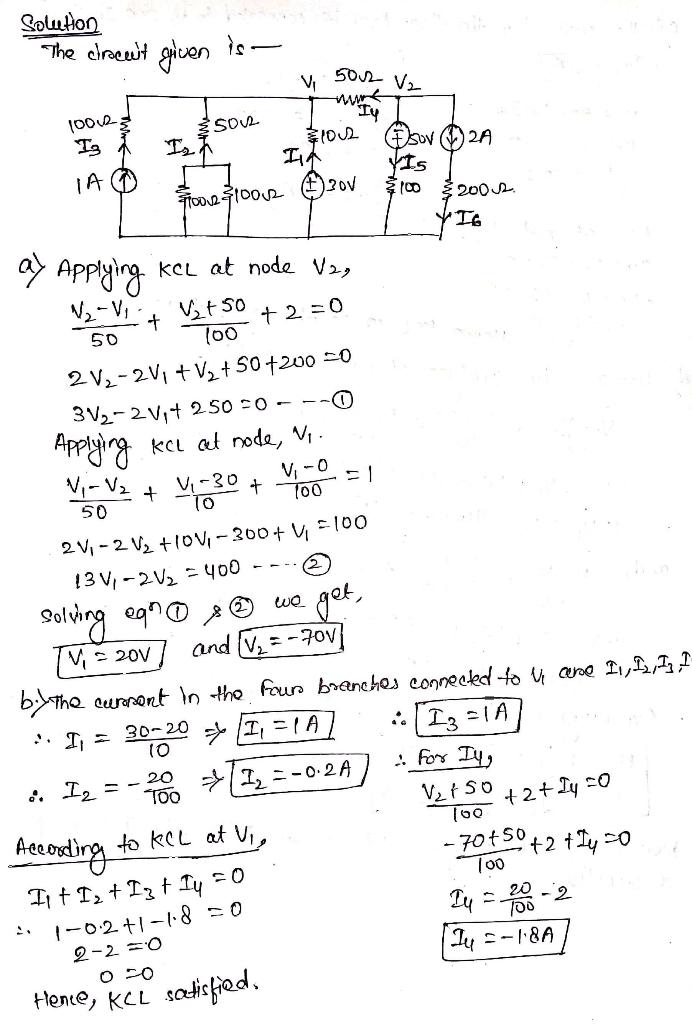 Solution
The circuit given is —
V1 50Ω V2
I4
100Ω 50Ω 10Ω 50V 2A
I3 I2 I1 I5
1A 100Ω 100Ω 30V 100 200Ω
I6
a) Applying KCL at node V2,
(V2-V1)/50 + (V2+50)/100 + 2 = 0
2V2-2V1+V2+50+200=0
3V2-2V1+250=0 - - - ①
Applying KCL at node, V1.
(V1-V2)/50 + (V1-30)/10 + (V1-0)/100 = 1
2V1-2V2+10V1-300+V1=100
13V1-2V2=400 - - - - ②
Solving eqn ① & ② we get,
V1=20V and V2=-70V
b.) The current in the four branches connected to V1 are I1, I2, I3, I
∴ I1 = (30-20)/10 ⇒ I1=1A
∴ I2 = -20/100 ⇒ I2=-0.2A
∴ I3=1A
∴ For I4,
(V2+50)/100 +2+I4=0
(-70+50)/100 +2+I4=0
I4 = 20/100 -2
I4=-1.8A
According to KCL at V1,
I1+I2+I3+I4=0
∴ 1-0.2+1-1.8=0
2-2=0
0=0
Hence, KCL satisfied.